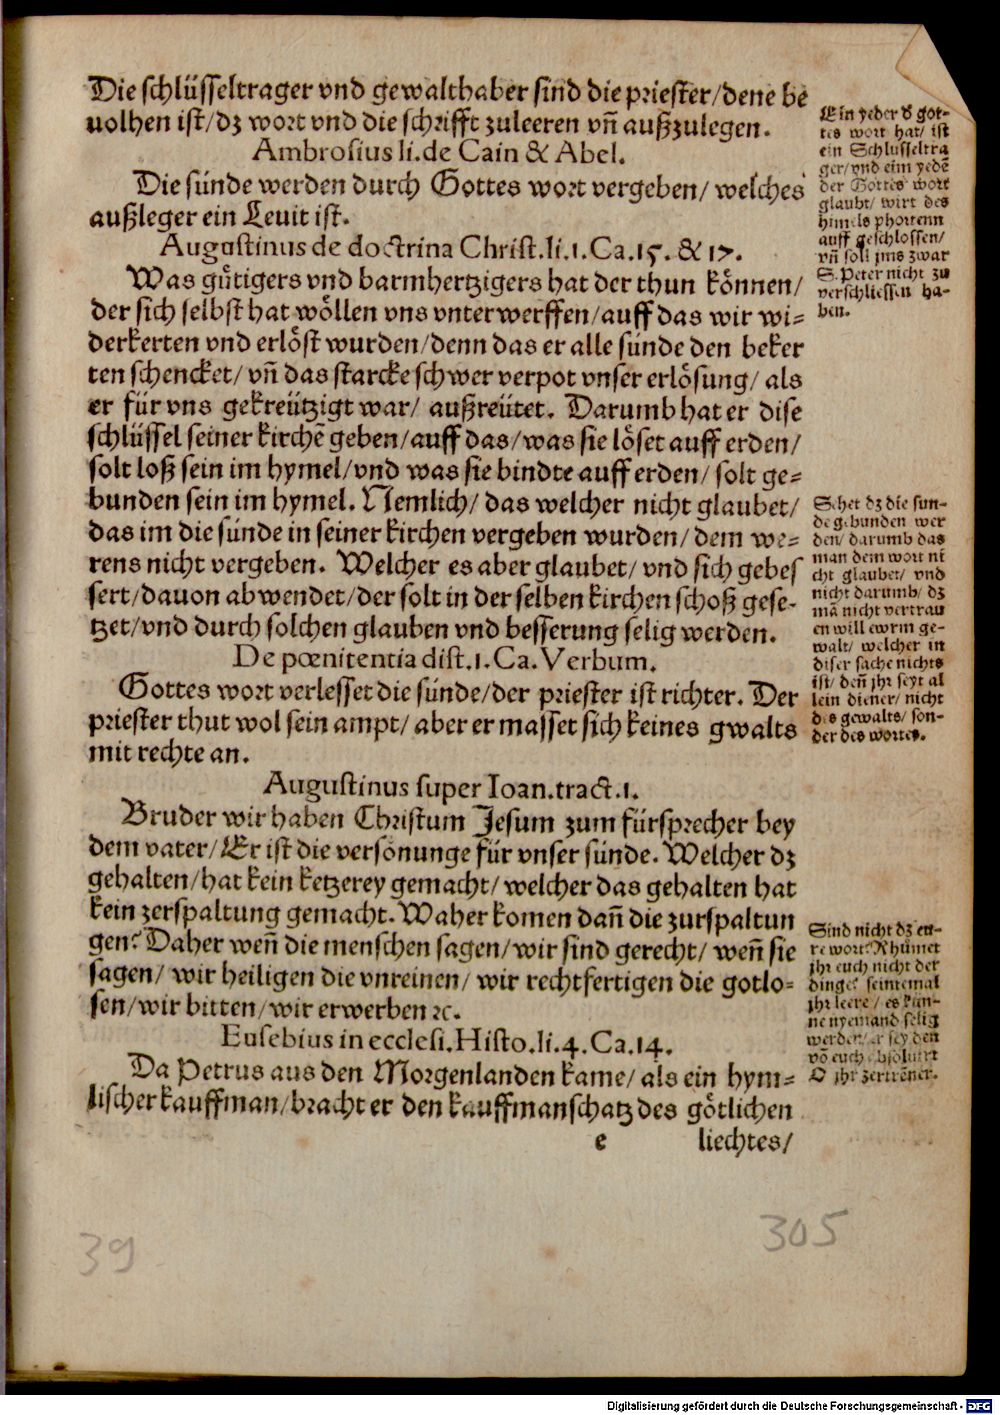 Die schlüsseltrager vnd gewalthaber sind die priester/dene be
uolhen ist/dz wort vnd die schrifft zuleeren vñ außzulegen.
Ambrosius li.de Cain & Abel.
Die sünde werden durch Gottes wort vergeben/ welches
außleger ein Leuit ist.
Augustinus de doctrina Christ.li.1.Ca.15.& 17.
Was gütigers vnd barmhertzigers hat der thun können/
der sich selbst hat wöllen vns vnterwerffen/auff das wir wi=
derkerten vnd erlöst wurden/denn das er alle sünde den beker
ten schencket/ vñ das starcke schwer verpot vnser erlösung/ als
er für vns gekreützigt war/ außreütet. Darumb hat er dise
schlüssel seiner kirchē geben/auff das/was sie löset auff erden/
solt loß sein im hymel/vnd was sie bindte auff erden/ solt ge=
bunden sein im hymel. Nemlich/ das welcher nicht glaubet/
das im die sünde in seiner kirchen vergeben wurden/ dem we=
rens nicht vergeben. Welcher es aber glaubet/ vnd sich gebes
sert/dauon abwendet/der solt in der selben kirchen schoß gese=
tzet/vnd durch solchen glauben vnd besserung selig werden.
De pœnitentia dist.1.Ca.Verbum.
Gottes wort verlesset die sünde/der priester ist richter. Der
priester thut wol sein ampt/ aber er masset sich keines gwalts
mit rechte an.
Augustinus super Ioan.tract.1.
Bruder wir haben Christum Jesum zum fürsprecher bey
dem vater/ Er ist die versönunge für vnser sünde. Welcher dz
gehalten/hat kein ketzerey gemacht/ welcher das gehalten hat
kein zerspaltung gemacht. Waher komen dañ die zurspaltun
gen? Daher weñ die menschen sagen/wir sind gerecht/ weñ sie
sagen/ wir heiligen die vnreinen/ wir rechtfertigen die gotlo=
sen/wir bitten/wir erwerben ꝛc.
Eusebius in ecclesi.Histo.li.4.Ca.14.
Da Petrus aus den Morgenlanden kame/ als ein hym=
lischer kauffman/bracht er den kauffmanschatz des götlichen
e liechtes/
Ein yeder d' got=
tes wort hat/ ist
ein Schlüsseltra
ger/vnd eim yedē
der Gottes wort
glaubt/ wirt des
himels phortenn
auff geschlossen/
vñ soll jms zwar
S. Peter nicht zu
verschliessen ha=
ben.
Sehet dz die sun=
de gebunden wer
den/ darumb das
man dem wort ni
cht glaubet/ vnd
nicht darumb/ dz
mā nicht vertrau
en will ewrm ge=
walt/ welcher in
diser sache nichts
ist/ deñ jhr seyt al
lein diener/ nicht
des gewalts/ son=
der des wortes.
Sind nicht dz eu=
re wort? Rhümet
jhr euch nicht der
dinge? seintemal
jhr leere/ es kün=
ne nyemand selig
werden/er sey den
vō euch absoluirt
O jhr zertrēner.
39
305
Digitalisierung gefördert durch die Deutsche Forschungsgemeinschaft - DFG